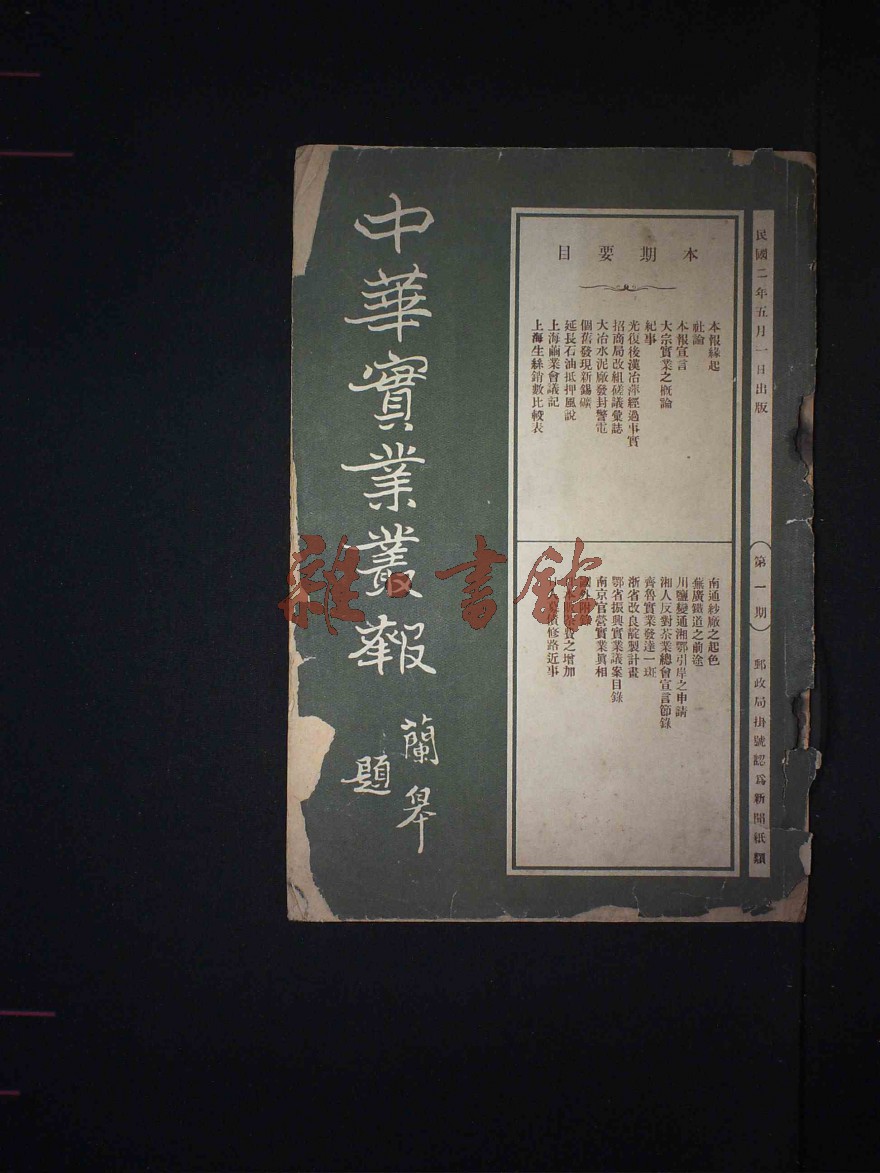 民國二年五月一日出版
（第一期）
郵政局掛號認爲新聞紙類
本期要目
本報緣起
社論
本報宣言
大宗實業之概論
紀事
光復後漢冶萍經過事實
招商局改組磋議彙誌
大冶水泥廠發封警電
個舊發現新錫礦
延長石油抵押風說
上海繭業會議記
上海生絲銷數比較表
南通紗廠之起色
蕪廣鐵道之前途
川鹽變通湘鄂引岸之申請
湘人反對茶業總會宣言節錄
齊魯實業發達一斑
浙省改良靛製計畫
鄂省振興實業議案目錄
南京官營實業眞相
國外附
費之增加
修路近事
中華實業叢報
蘭皋
題
雜·書館